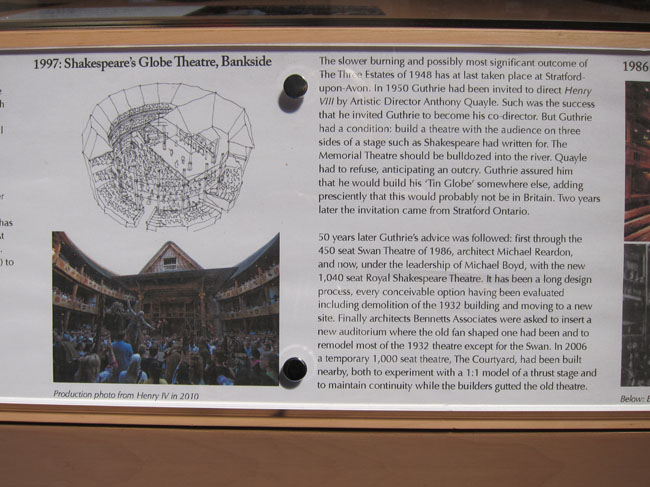 1997: Shakespeare's Globe Theatre, Bankside
Production photo from Henry IV in 2010
The slower burning and possibly most significant outcome of
The Three Estates of 1948 has at last taken place at Stratford-
upon-Avon. In 1950 Guthrie had been invited to direct Henry
VIII by Artistic Director Anthony Quayle. Such was the success
that he invited Guthrie to become his co-director. But Guthrie
had a condition: build a theatre with the audience on three
sides of a stage such as Shakespeare had written for. The
Memorial Theatre should be bulldozed into the river. Quayle
had to refuse, anticipating an outcry. Guthrie assured him
that he would build his 'Tin Globe' somewhere else, adding
presciently that this would probably not be in Britain. Two years
later the invitation came from Stratford Ontario.
50 years later Guthrie's advice was followed: first through the
450 seat Swan Theatre of 1986, architect Michael Reardon,
and now, under the leadership of Michael Boyd, with the new
1,040 seat Royal Shakespeare Theatre. It has been a long design
process, every conceivable option having been evaluated
including demolition of the 1932 building and moving to a new
site. Finally architects Bennetts Associates were asked to insert a
new auditorium where the old fan shaped one had been and to
remodel most of the 1932 theatre except for the Swan. In 2006
a temporary 1,000 seat theatre, The Courtyard, had been built
nearby, both to experiment with a 1:1 model of a thrust stage and
to maintain continuity while the builders gutted the old theatre.
1986
Below: